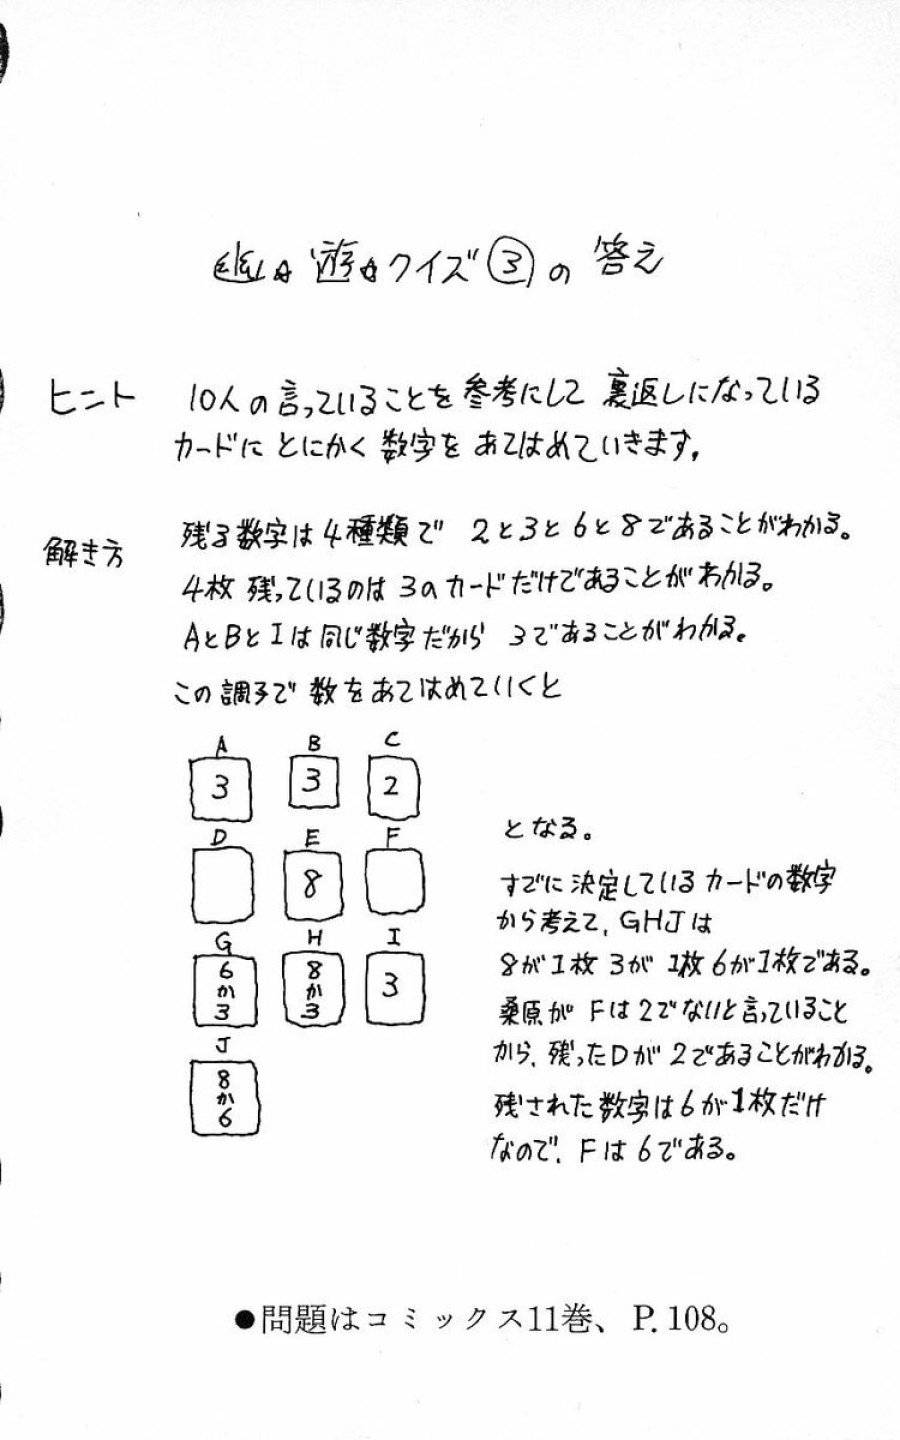 幽☆遊☆クイズ③の答え
ヒント 10人の言っていることを参考にして裏返しになっている
カードにとにかく数字をあてはめていきます。
解き方 残る数字は4種類で 2と3と6と8であることがわかる。
4枚残っているのは3のカードだけであることがわかる。
AとBとIは同じ数字だから 3であることがわかる。
この調子で数をあてはめていくと
A B C
3 3 2
D E F
8
G H I
6か3 8か3 3
J
8か6
となる。
すでに決定しているカードの数字
から考えて、GHJは
8が1枚 3が1枚 6が1枚である。
桑原がFは2でないと言っていること
から、残ったDが2であることがわかる。
残された数字は6が1枚だけ
なので、Fは6である。
●問題はコミックス11巻、P.108。